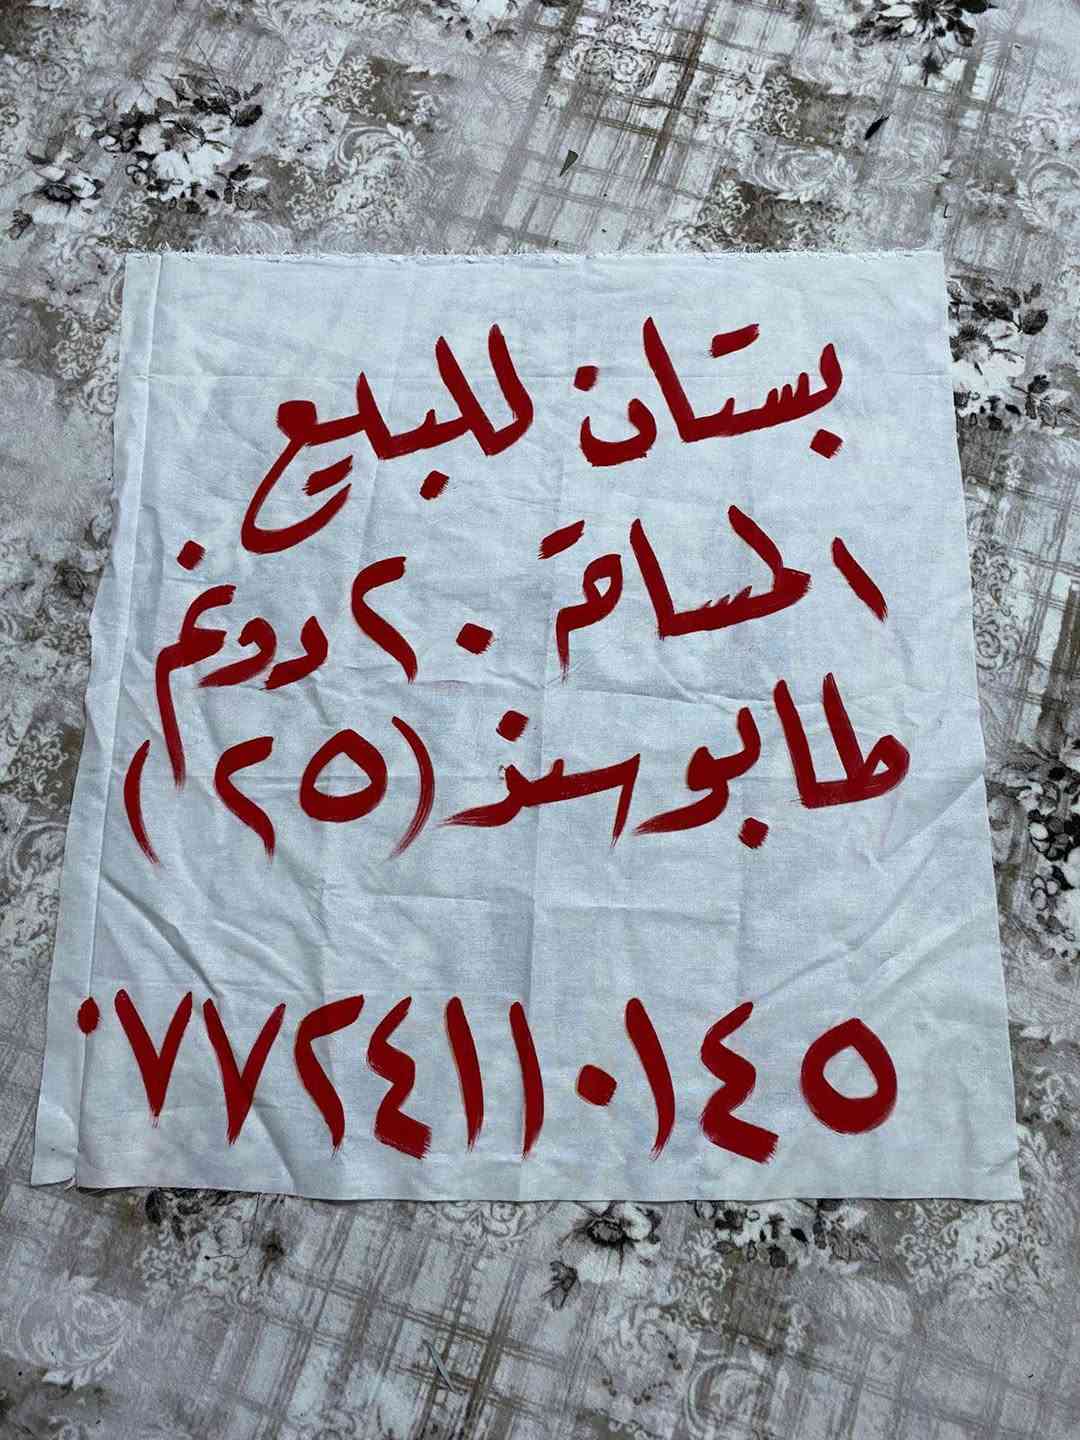 بستان للبيع
المساحة ٢٠ دونم
طابو سند (٢٥)
٠٧٧٢٤١١٠١٤٥